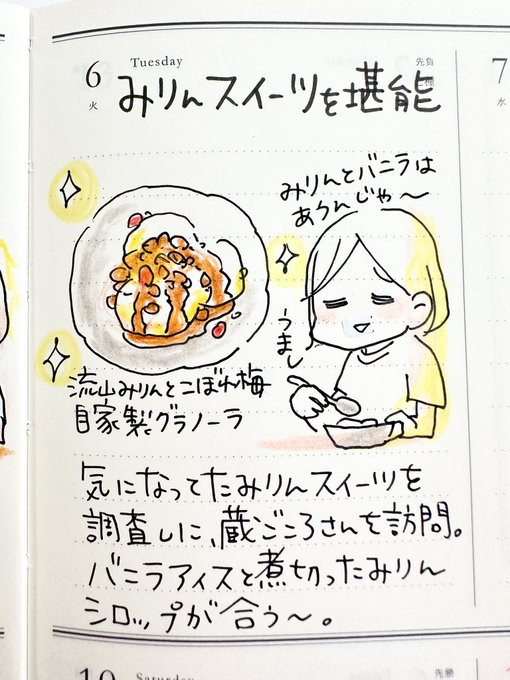 6
Tuesday
火
先負
7
水
みりんスイーツを堪能
みりんとバニラは
あうんじゃ〜
うまし
流山みりんとこぼれ梅
自家製グラノーラ
気になってたみりんスイーツを
調査しに、蔵ごころさんを訪問。
バニラアイスと煮切ったみりん
シロップが合う〜。
10
Saturday
先勝